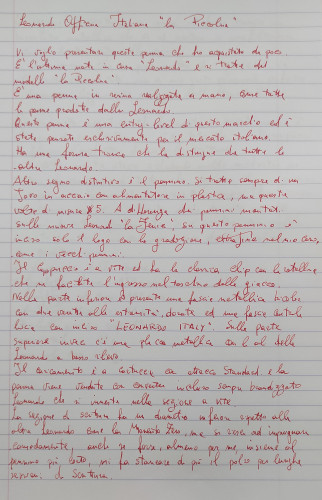 Leonardo Officina Italiana "la Piccolina"
Vi voglio presentare questa penna che ho acquistato da poco.
E' l'ultima nata in casa "Leonardo" e si tratta del
modello "la Piccolina".
E' una penna in resina realizzata a mano, come tutte
le penne prodotte dalla Leonardo.
Questa penna è una entry-level di questo marchio ed è
stata pensata esclusivamente per il mercato italiano.
Ha una forma tronca che la distingue da tutte le
altre Leonardo.
Altro segno distintivo è il pennino. Si tratta sempre di un
Jowo in acciaio con alimentatore in plastica, ma questa
volta di misura #5. A differenza dei pennini montati
sulle nuove "la Fenice", su questo pennino è
inciso solo il logo con la gradazione, nel mio caso,
come i vecchi pennini.
Il cappuccio è a vite ed ha la classica clip con la rotellina
che ne facilita l'ingresso nel taschino della giacca.
Nella parte inferiore è presente una fascia metallica
con due anelli alle estremità, dorate ed una fascia centrale
liscia con inciso "LEONARDO ITALY". Sulla parte
superiore invece c'è una placca metallica col logo della
Leonardo a basso rilievo.
Il caricamento è a cartucce con attacco standard e la
penna viene venduta con converter incluso sempre brandizzato
Leonardo che si innesta nella sezione a vite.
La sezione di scrittura ha un diametro inferiore rispetto alle
altre Leonardo come la Momento Zero, ma si riesce ad impugnare
comodamente, anche se forse, almeno per me, insieme al
pennino più corto, mi fa stancare di più il polso per lunghe
sessioni di scrittura.